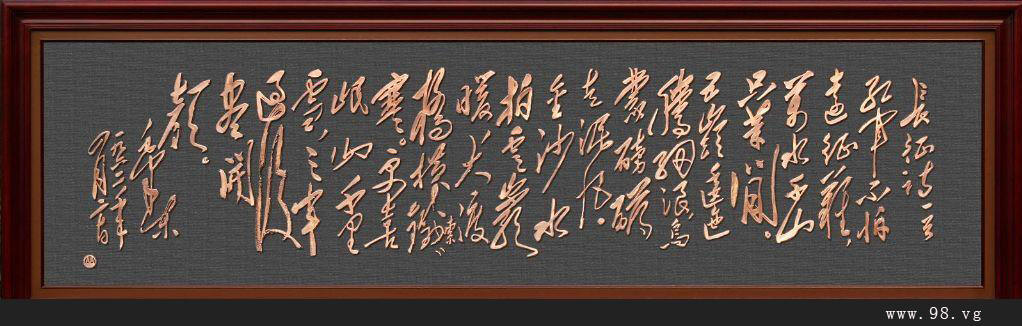 長征詩一首
紅軍不怕
遠征難，
萬水千山
只等閒。
五嶺逶迤
騰細浪，烏
蒙磅礴
走泥丸。
金沙水
拍雲崖
暖，大渡
橋橫鐵索
寒。更喜
岷山千里
雪，三軍
過後
盡開
顏。
毛澤東
www.98.vg